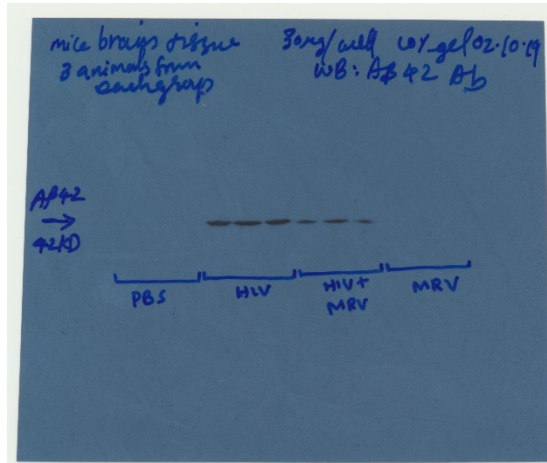 mice brains tissue
3 animals from
each group
30ug/well 10% gel 02.10.19
WB: Aβ 42 Ab
Aβ42
→
42KD
PBS
HIV
HIV+
MRV
MRV